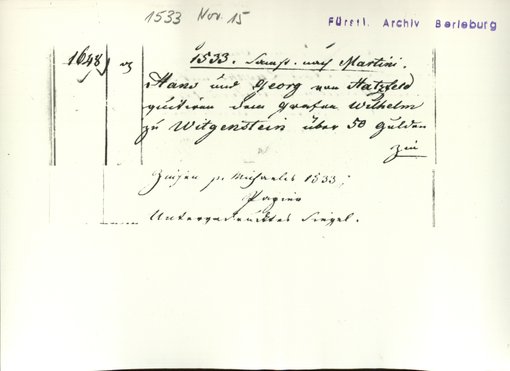 1533 Nov. 15
Fürstl. Archiv Berleburg
1648
1533. Samst. nach Martini.
Hans und Georg von Hatzfeld
quitiren dem Grafen Wilhelm
zu Witgenstein über 50 Gulden
Zinsen pr Michaelis 1533;
Papier
Untergedrucktes Siegel.